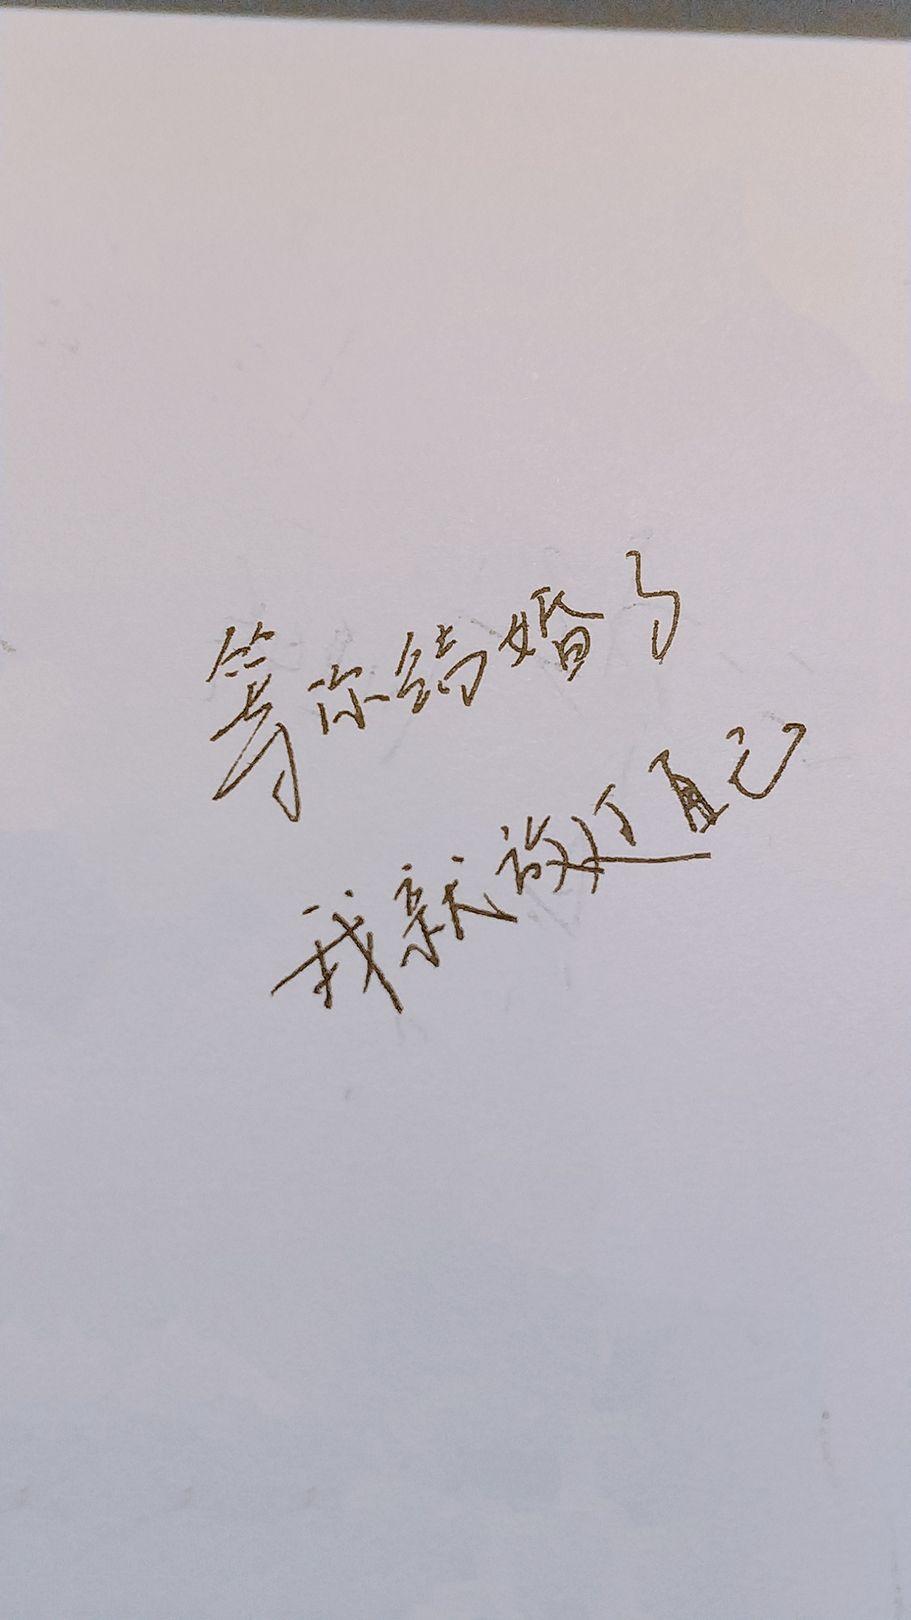 等你结婚了
我就放过自己